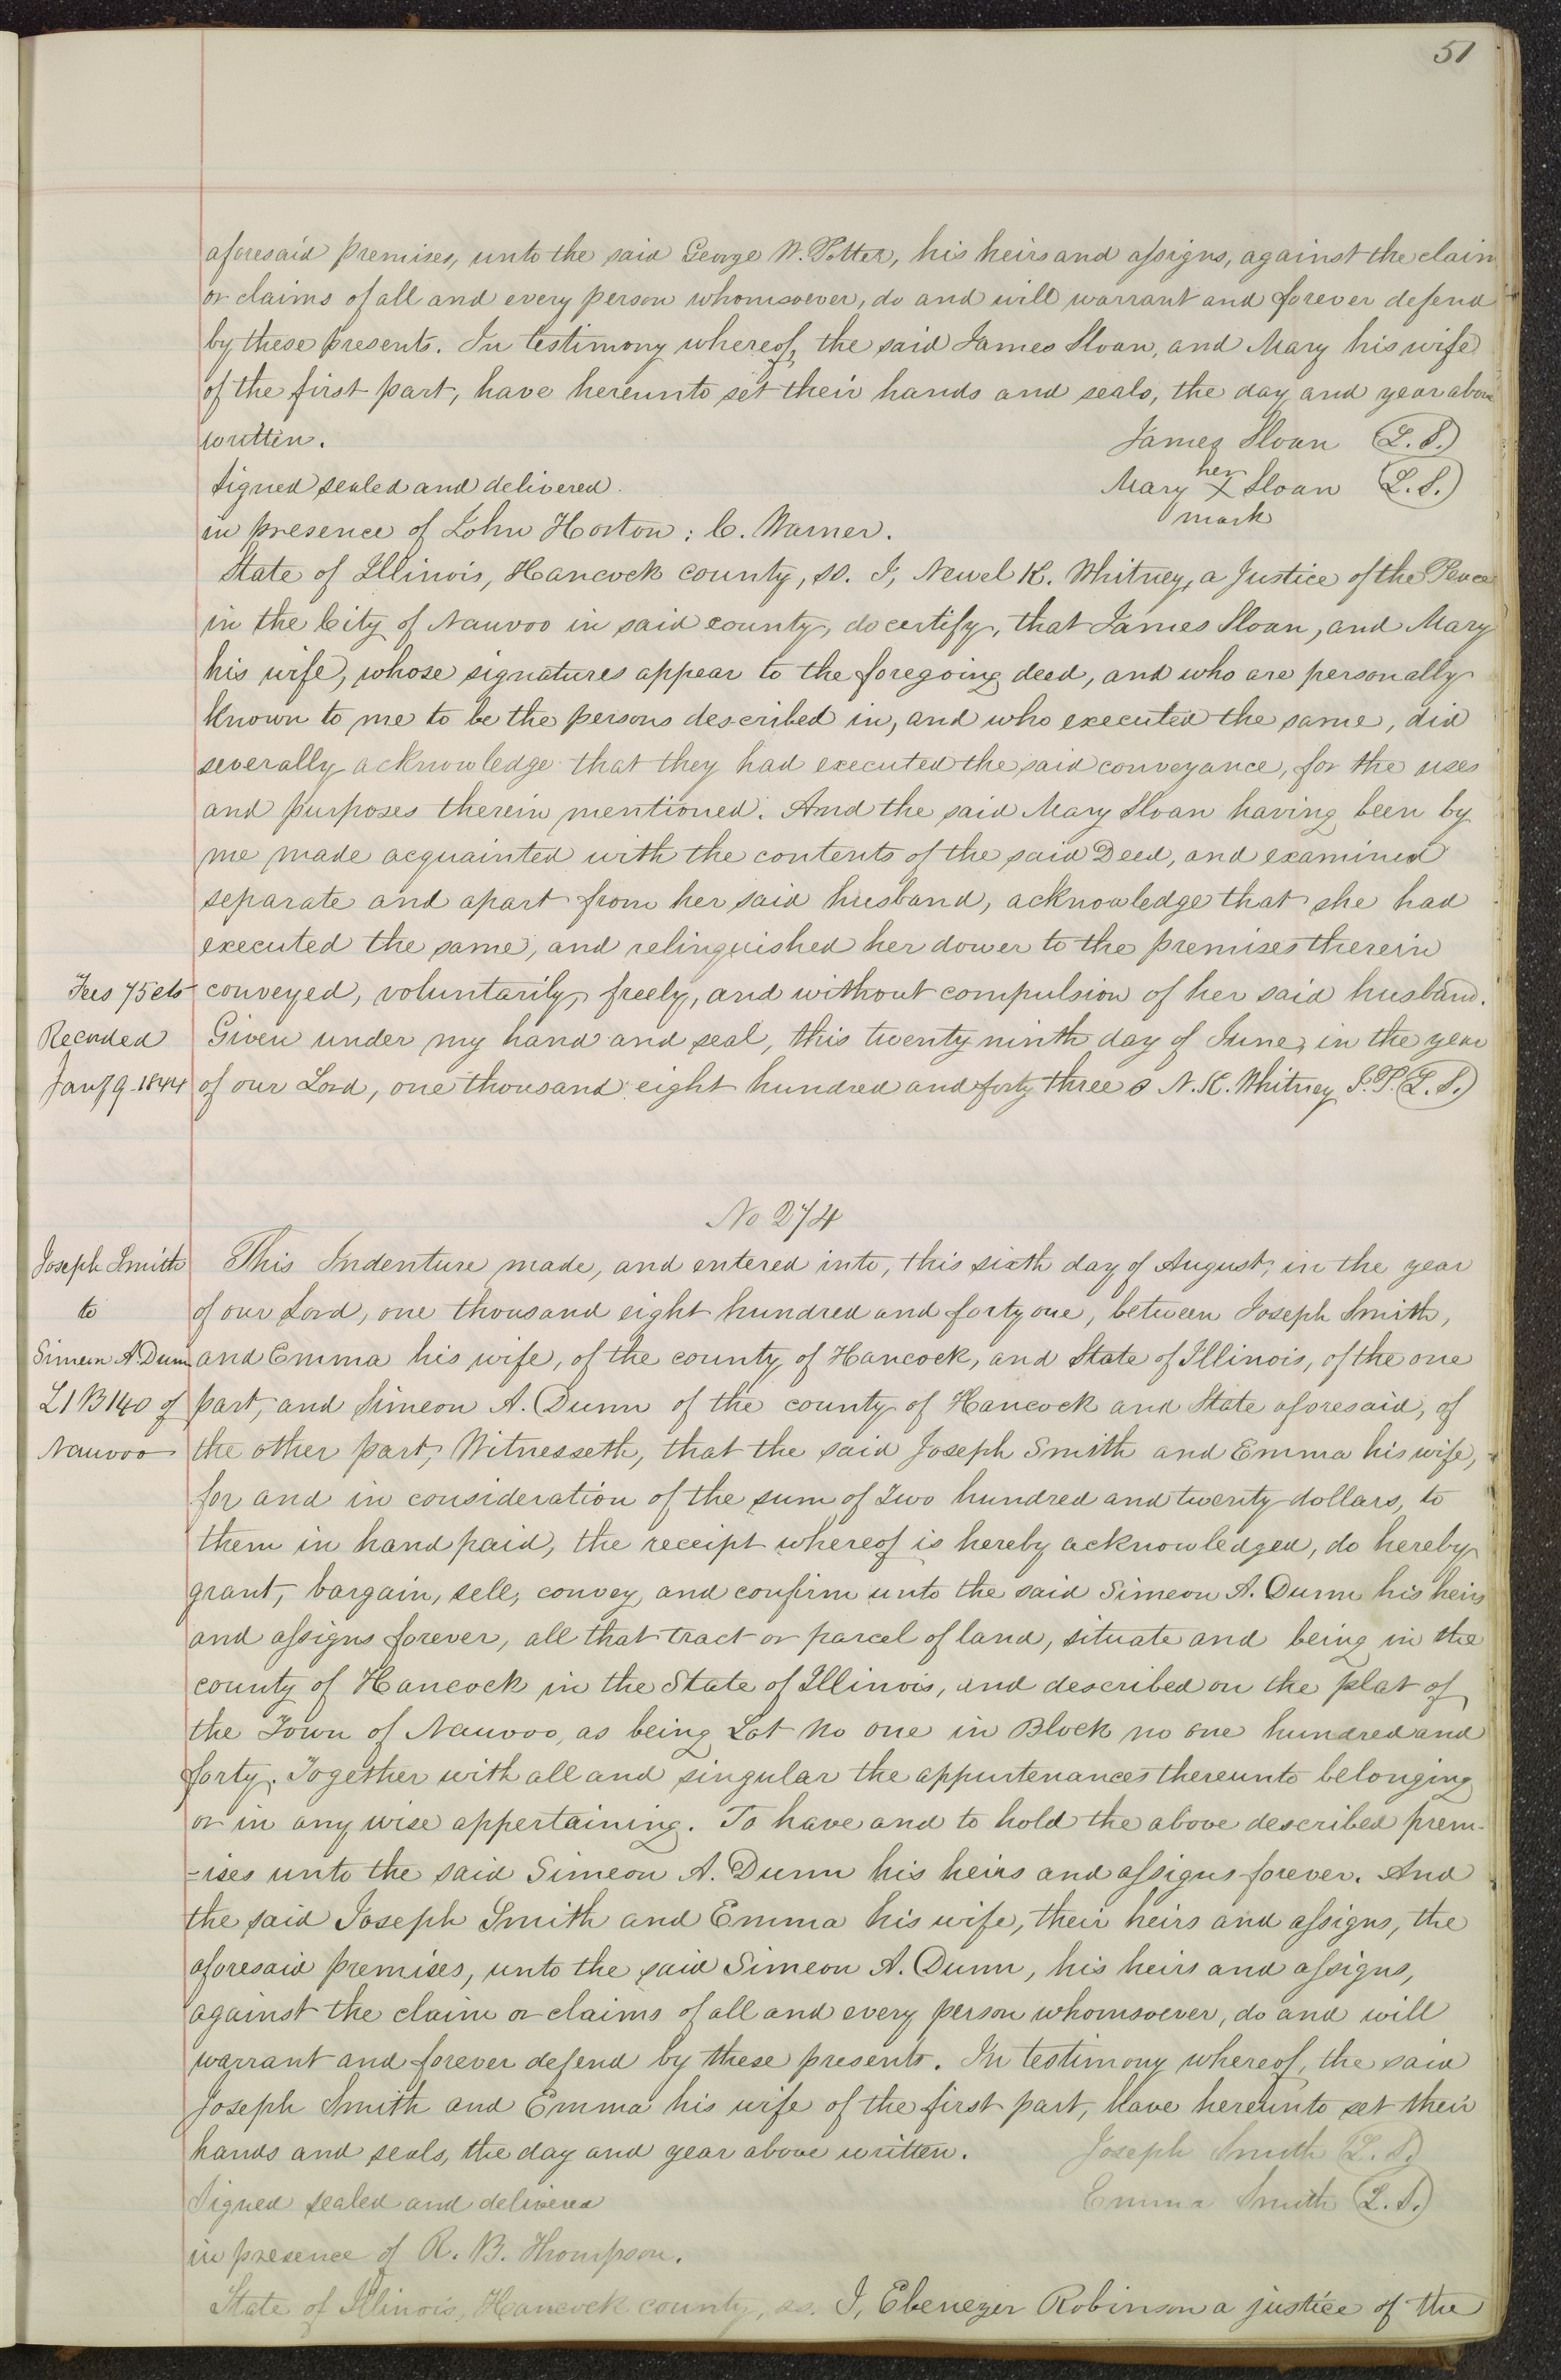 51
aforesaid premises, unto the said George W. Potter, his heirs and assigns, against the claim
or claims of all and every person whomsoever, do and will warrant and forever defend
by these presents. In testimony whereof, the said James Sloan, and Mary his wife
of the first part, have hereunto set their hands and seals, the day and year above
written. James Sloan (L.S.)
Signed sealed and delivered. Mary her X mark Sloan (L.S.)
in presence of John Horton : C. Warner.
State of Illinois, Hancock county, ss. I, Newel K. Whitney, a Justice of the Peace
in the City of Nauvoo in said county, do certify, that James Sloan, and Mary
his wife, whose signatures appear to the foregoing deed, and who are personally
known to me to be the persons described in, and who executed the same, did
severally acknowledge that they had executed the said conveyance, for the uses
and purposes therein mentioned. And the said Mary Sloan having been by
me made acquainted with the contents of the said Deed, and examined
separate and apart from her said husband, acknowledge that she had
executed the same, and relinquished her dower to the premises therein
Fees 75 cts conveyed, voluntarily, freely, and without compulsion of her said husband.
Recorded Given under my hand and seal, this twenty ninth day of June, in the year
Jany 9 1844 of our Lord, one thousand eight hundred and forty three N. K. Whitney J.P. (L.S.)
No 274
Joseph Smith This Indenture made, and entered into, this sixth day of August, in the year
to of our Lord, one thousand eight hundred and forty one, between Joseph Smith,
Simeon A. Dunn and Emma his wife, of the county of Hancock, and State of Illinois, of the one
L 1 B 140 of part, and Simeon A. Dunn of the county of Hancock and State aforesaid, of
Nauvoo the other part, Witnesseth, that the said Joseph Smith and Emma his wife,
for and in consideration of the sum of Two hundred and twenty dollars, to
them in hand paid, the receipt whereof is hereby acknowledged, do hereby
grant, bargain, sell, convey, and confirm unto the said Simeon A. Dunn his heirs
and assigns forever, all that tract or parcel of land, situate and being in the
county of Hancock in the State of Illinois, and described on the plat of
the Town of Nauvoo, as being Lot No one in Block no one hundred and
forty. Together with all and singular the appurtenances thereunto belonging
or in any wise appertaining. To have and to hold the above described prem-
=ises unto the said Simeon A. Dunn his heirs and assigns forever. And
the said Joseph Smith and Emma his wife, their heirs and assigns, the
aforesaid premises, unto the said Simeon A. Dunn, his heirs and assigns,
against the claim or claims of all and every person whomsoever, do and will
warrant and forever defend by these presents. In testimony whereof, the said
Joseph Smith and Emma his wife of the first part, have hereunto set their
hands and seals, the day and year above written. Joseph Smith (L.S.)
Signed sealed and delivered Emma Smith (L.S.)
in presence of R. B. Thompson.
State of Illinois, Hancock county, ss. I, Ebenezer Robinson a justice of the